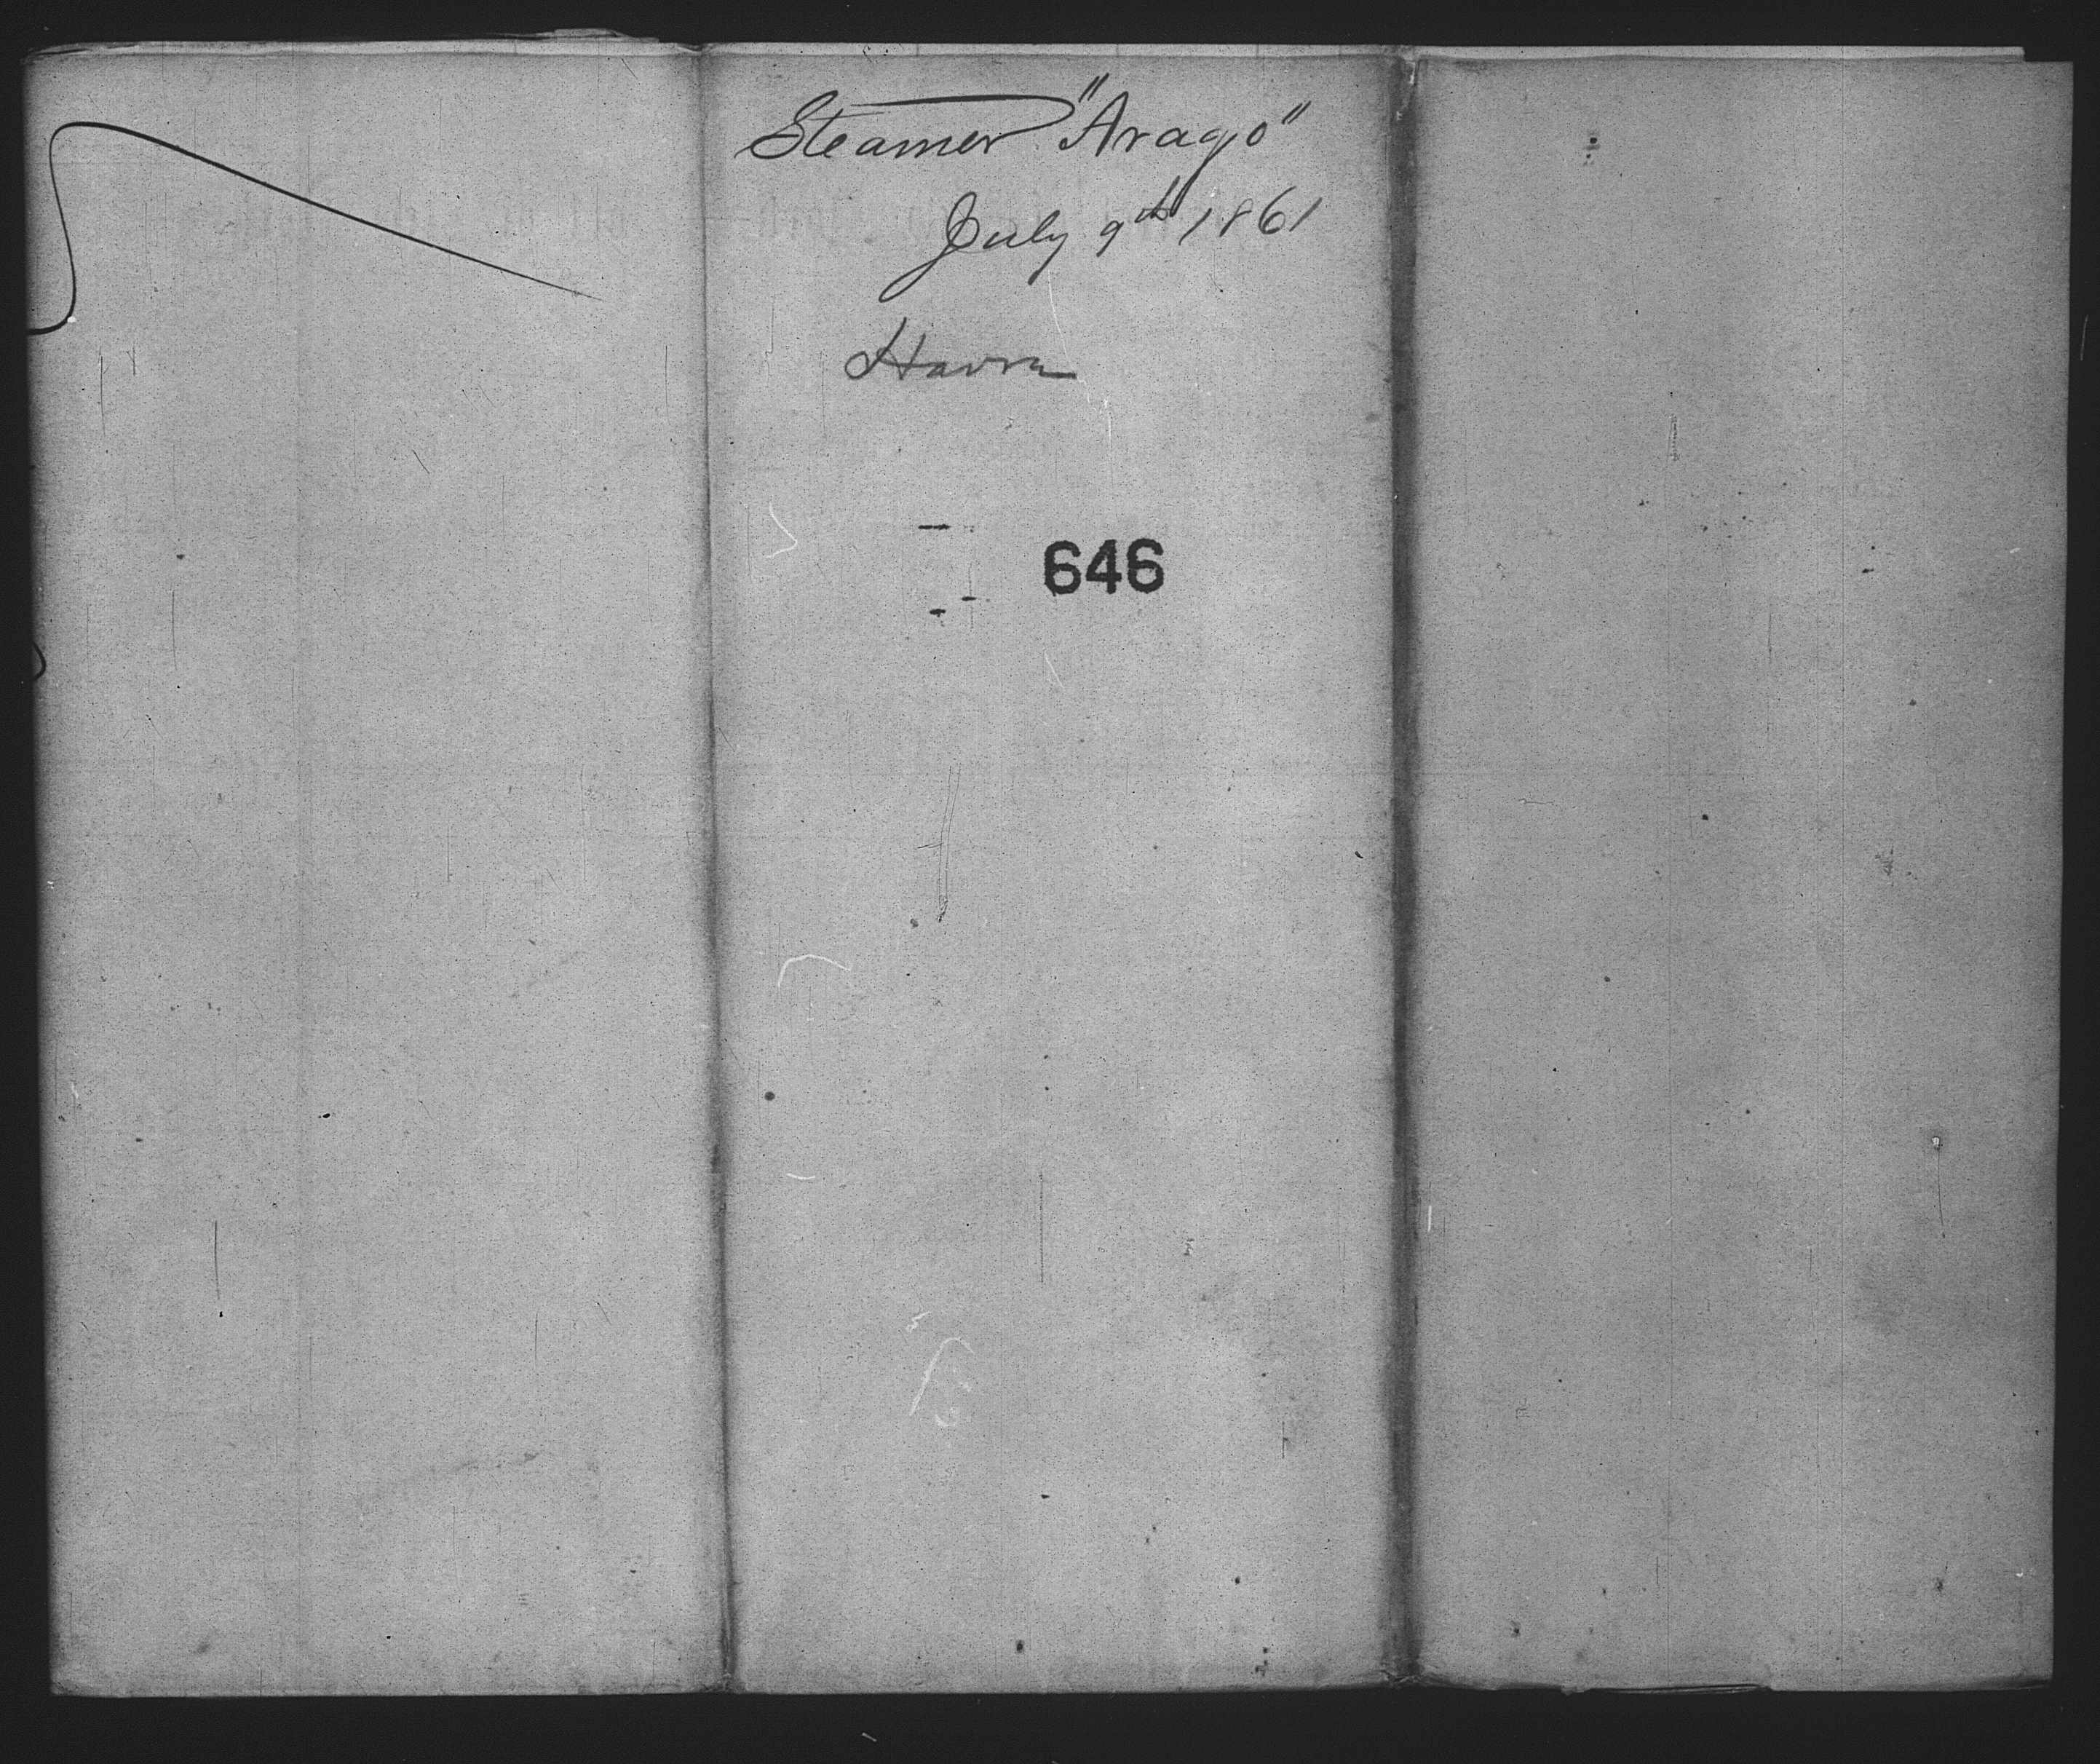 Steamer "Arago"
July 9th 1861
Havre
646